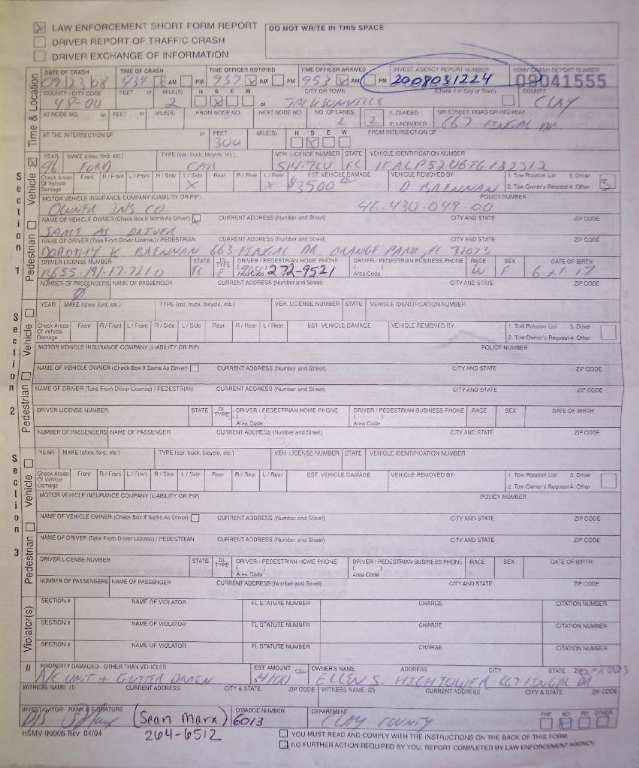 LAW ENFORCEMENT SHORT FORM REPORT
DO NOT WRITE IN THIS SPACE
DRIVER REPORT OF TRAFFIC CRASH
DRIVER EXCHANGE OF INFORMATION
DATE OF CRASH TIME OF CRASH TIME OFFICER NOTIFIED TIME OFFICER ARRIVED INVEST. AGENCY REPORT NUMBER HSMV CRASH REPORT NUMBER
AM PM 937 AM PM 953 AM PM 2008031224 09041555
COUNTY / CITY CODE FEET or MILE(S) N S E W CITY OR TOWN (Check if in City or Town) COUNTY
48-00 2 of JACKSONVILLE CLAY
AT NODE NO. or FEET MILE(S) FROM NODE NO. NEXT NODE NO. NO. OF LANES 1. DIVIDED 2. UNDIVIDED ON STREET, ROAD OR HIGHWAY
2 2 667 FINGAL DR
AT THE INTERSECTION OF or FEET MILE(S) N S E W FROM INTERSECTION OF
300
Time & Location
Section 1
Pedestrian Vehicle
YEAR MAKE (chev, ford, etc.) TYPE (car, truck, bicycle, etc.) VEH. LICENSE NUMBER STATE VEHICLE IDENTIFICATION NUMBER
96 FORD CAR FL
Check Areas Of Vehicle Damage Front R / Front L / Front R / Side L / Side Rear R / Rear L / Rear EST. VEHICLE DAMAGE VEHICLE REMOVED BY: 1. Tow Rotation List 3. Driver
X X $3500 D BRENNAN 2. Tow Owner's Request 4. Other 3
MOTOR VEHICLE INSURANCE COMPANY (LIABILITY OR PIP) POLICY NUMBER
OWNER INS CO 41-430-049-00
NAME OF VEHICLE OWNER (Check Box If Same As Driver) CURRENT ADDRESS (Number and Street) CITY AND STATE ZIP CODE
SAME AS DRIVER
NAME OF DRIVER (Take From Driver License) / PEDESTRIAN CURRENT ADDRESS (Number and Street) CITY AND STATE ZIP CODE
DOROTHY K BRENNAN 663 FINGAL DR ORANGE PARK, FL 32073
DRIVER LICENSE NUMBER STATE DL TYPE DRIVER / PEDESTRIAN HOME PHONE DRIVER / PEDESTRIAN BUSINESS PHONE RACE SEX DATE OF BIRTH
FL E 272-9521 Area Code W F
NUMBER OF PASSENGERS NAME OF PASSENGER CURRENT ADDRESS (Number and Street) CITY AND STATE ZIP CODE
Section 2
Pedestrian Vehicle
YEAR MAKE (chev, ford, etc.) TYPE (car, truck, bicycle, etc.) VEH. LICENSE NUMBER STATE VEHICLE IDENTIFICATION NUMBER
Check Areas Of Vehicle Damage Front R / Front L / Front R / Side L / Side Rear R / Rear L / Rear EST. VEHICLE DAMAGE VEHICLE REMOVED BY: 1. Tow Rotation List 3. Driver
2. Tow Owner's Request 4. Other
MOTOR VEHICLE INSURANCE COMPANY (LIABILITY OR PIP) POLICY NUMBER
NAME OF VEHICLE OWNER (Check Box If Same As Driver) CURRENT ADDRESS (Number and Street) CITY AND STATE ZIP CODE
NAME OF DRIVER (Take From Driver License) / PEDESTRIAN CURRENT ADDRESS (Number and Street) CITY AND STATE ZIP CODE
DRIVER LICENSE NUMBER STATE DL TYPE DRIVER / PEDESTRIAN HOME PHONE DRIVER / PEDESTRIAN BUSINESS PHONE RACE SEX DATE OF BIRTH
Area Code Area Code
NUMBER OF PASSENGERS NAME OF PASSENGER CURRENT ADDRESS (Number and Street) CITY AND STATE ZIP CODE
Section 3
Pedestrian Vehicle
YEAR MAKE (chev, ford, etc.) TYPE (car, truck, bicycle, etc.) VEH. LICENSE NUMBER STATE VEHICLE IDENTIFICATION NUMBER
Check Areas Of Vehicle Damage Front R / Front L / Front R / Side L / Side Rear R / Rear L / Rear EST. VEHICLE DAMAGE VEHICLE REMOVED BY: 1. Tow Rotation List 3. Driver
2. Tow Owner's Request 4. Other
MOTOR VEHICLE INSURANCE COMPANY (LIABILITY OR PIP) POLICY NUMBER
NAME OF VEHICLE OWNER (Check Box If Same As Driver) CURRENT ADDRESS (Number and Street) CITY AND STATE ZIP CODE
NAME OF DRIVER (Take From Driver License) / PEDESTRIAN CURRENT ADDRESS (Number and Street) CITY AND STATE ZIP CODE
DRIVER LICENSE NUMBER STATE DL TYPE DRIVER / PEDESTRIAN HOME PHONE DRIVER / PEDESTRIAN BUSINESS PHONE RACE SEX DATE OF BIRTH
Area Code Area Code
NUMBER OF PASSENGERS NAME OF PASSENGER CURRENT ADDRESS (Number and Street) CITY AND STATE ZIP CODE
Violator(s)
SECTION # NAME OF VIOLATOR FL STATUTE NUMBER CHARGE CITATION NUMBER
SECTION # NAME OF VIOLATOR FL STATUTE NUMBER CHARGE CITATION NUMBER
SECTION # NAME OF VIOLATOR FL STATUTE NUMBER CHARGE CITATION NUMBER
# PROPERTY DAMAGED - OTHER THAN VEHICLES EST. AMOUNT OWNER'S NAME ADDRESS CITY STATE ZIP
A/C UNIT + GUTTER DRAIN ELLEN S. HIGHTOWER 667 FINGAL DR
WITNESS NAME (1) CURRENT ADDRESS CITY & STATE ZIP CODE WITNESS NAME (2) CURRENT ADDRESS CITY & STATE ZIP CODE
INVESTIGATOR - RANK & SIGNATURE ID/BADGE NUMBER DEPARTMENT FHP SO PD OTHER
(Sean Marx) 6013 CLAY COUNTY
264-6512
HSMV-90006 Rev 04/94
YOU MUST READ AND COMPLY WITH THE INSTRUCTIONS ON THE BACK OF THIS FORM.
NO FURTHER ACTION REQUIRED BY YOU, REPORT COMPLETED BY LAW ENFORCEMENT AGENCY.